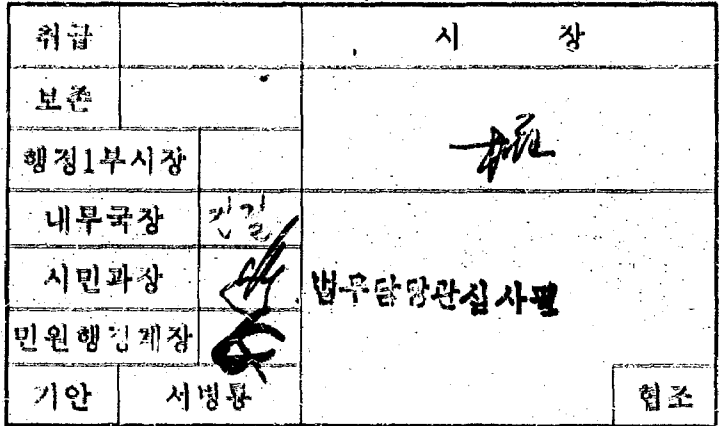 취급 시 장
보존
행정1부시장
내무국장 전결
시민과장
법무담당관심사필
민원행정계장
기안 서병룡 협조